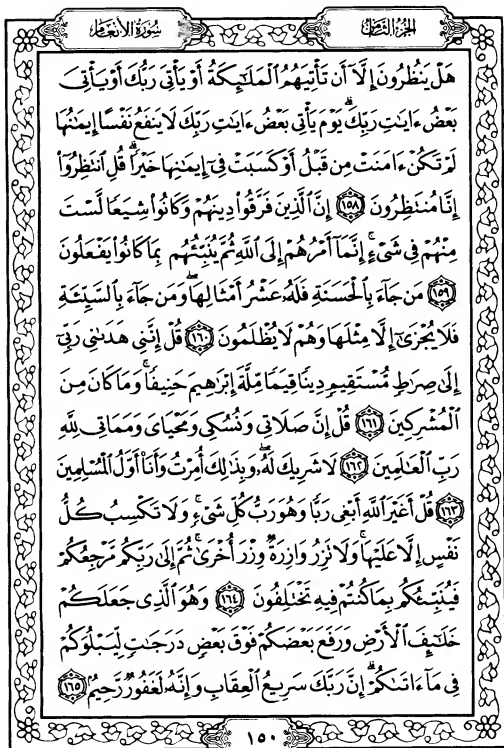 سُورَةُ الأَنعَام
الجُزءُ الثَّامِنُ
هَلْ يَنظُرُونَ إِلَّآ أَن تَأْتِيَهُمُ ٱلْمَلَٰٓئِكَةُ أَوْ يَأْتِىَ رَبُّكَ أَوْ يَأْتِىَ
بَعْضُ ءَايَٰتِ رَبِّكَ ۗ يَوْمَ يَأْتِى بَعْضُ ءَايَٰتِ رَبِّكَ لَا يَنفَعُ نَفْسًا إِيمَٰنُهَا
لَمْ تَكُنْ ءَامَنَتْ مِن قَبْلُ أَوْ كَسَبَتْ فِىٓ إِيمَٰنِهَا خَيْرًا ۗ قُلِ ٱنتَظِرُوٓا۟
إِنَّا مُنتَظِرُونَ ١٥٨ إِنَّ ٱلَّذِينَ فَرَّقُوا۟ دِينَهُمْ وَكَانُوا۟ شِيَعًا لَّسْتَ
مِنْهُمْ فِى شَىْءٍ ۚ إِنَّمَآ أَمْرُهُمْ إِلَى ٱللَّهِ ثُمَّ يُنَبِّئُهُم بِمَا كَانُوا۟ يَفْعَلُونَ
١٥٩ مَن جَآءَ بِٱلْحَسَنَةِ فَلَهُۥ عَشْرُ أَمْثَالِهَا ۖ وَمَن جَآءَ بِٱلسَّيِّئَةِ
فَلَا يُجْزَىٰٓ إِلَّا مِثْلَهَا وَهُمْ لَا يُظْلَمُونَ ١٦٠ قُلْ إِنَّنِى هَدَىٰنِى رَبِّىٓ
إِلَىٰ صِرَٰطٍ مُّسْتَقِيمٍ دِينًا قِيَمًا مِّلَّةَ إِبْرَٰهِيمَ حَنِيفًا ۚ وَمَا كَانَ مِنَ
ٱلْمُشْرِكِينَ ١٦١ قُلْ إِنَّ صَلَاتِى وَنُسُكِى وَمَحْيَاىَ وَمَمَاتِى لِلَّهِ
رَبِّ ٱلْعَٰلَمِينَ ١٦٢ لَا شَرِيكَ لَهُۥ ۖ وَبِذَٰلِكَ أُمِرْتُ وَأَنَا۠ أَوَّلُ ٱلْمُسْلِمِينَ
١٦٣ قُلْ أَغَيْرَ ٱللَّهِ أَبْغِى رَبًّا وَهُوَ رَبُّ كُلِّ شَىْءٍ ۚ وَلَا تَكْسِبُ كُلُّ
نَفْسٍ إِلَّا عَلَيْهَا ۚ وَلَا تَزِرُ وَازِرَةٌ وِزْرَ أُخْرَىٰ ۚ ثُمَّ إِلَىٰ رَبِّكُم مَّرْجِعُكُمْ
فَيُنَبِّئُكُم بِمَا كُنتُمْ فِيهِ تَخْتَلِفُونَ ١٦٤ وَهُوَ ٱلَّذِى جَعَلَكُمْ
خَلَٰٓئِفَ ٱلْأَرْضِ وَرَفَعَ بَعْضَكُمْ فَوْقَ بَعْضٍ دَرَجَٰتٍ لِّيَبْلُوَكُمْ
فِى مَآ ءَاتَىٰكُمْ ۗ إِنَّ رَبَّكَ سَرِيعُ ٱلْعِقَابِ وَإِنَّهُۥ لَغَفُورٌ رَّحِيمٌۢ ١٦٥
١٥٠